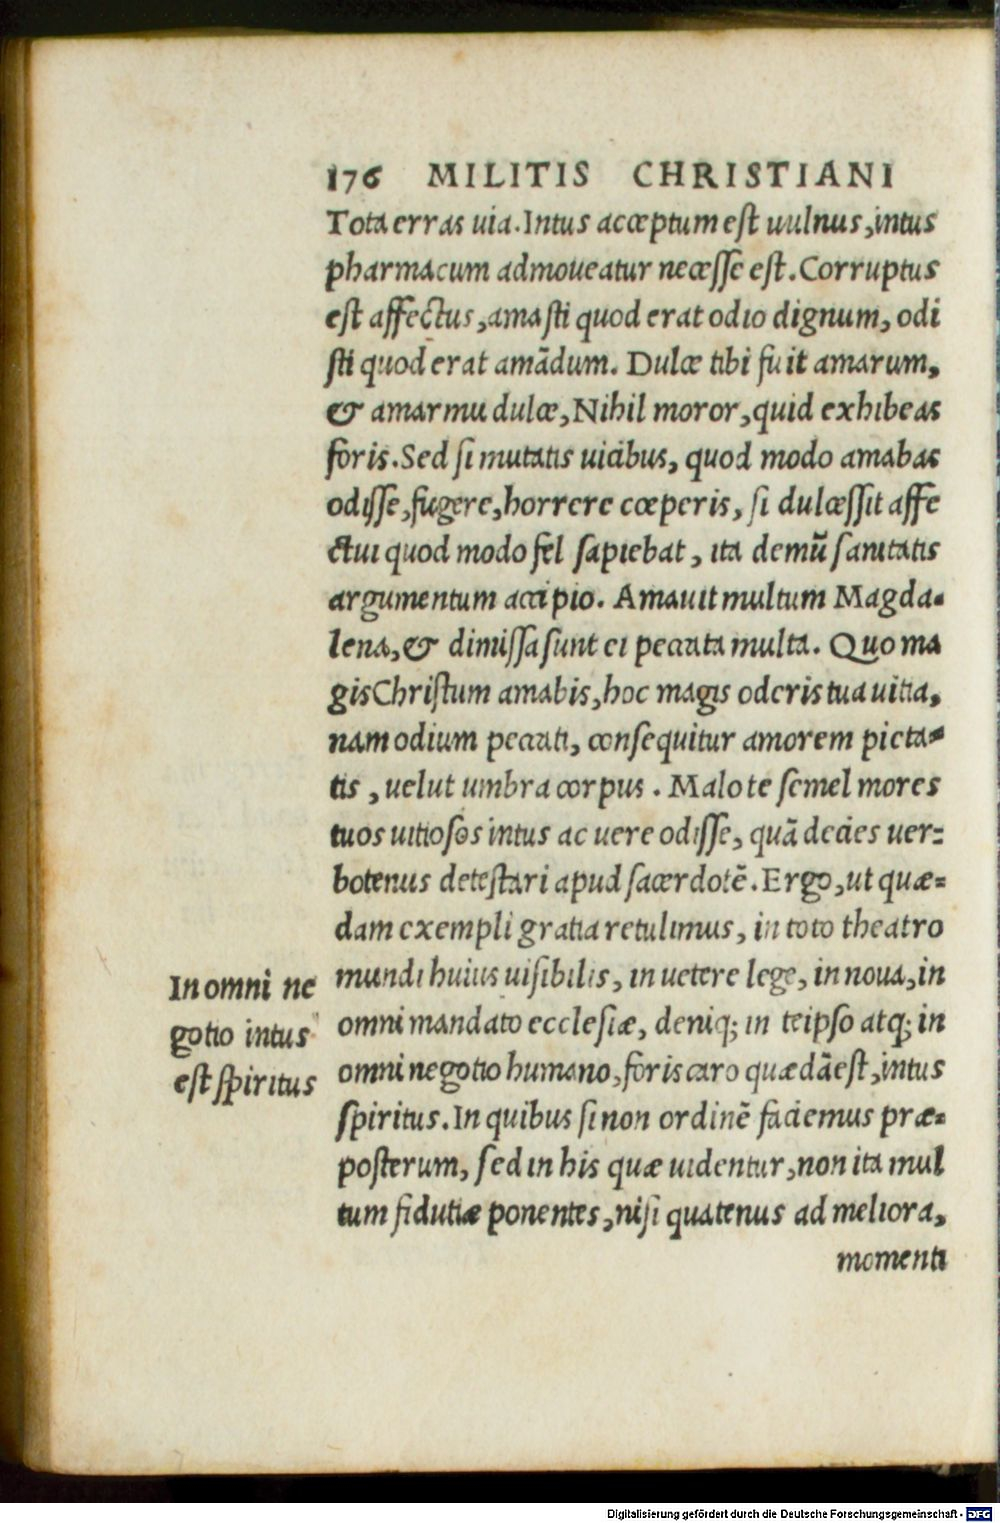 176 MILITIS CHRISTIANI
Tota erras uia. Intus acceptum est uulnus, intus
pharmacum admoueatur necesse est. Corruptus
est affectus, amasti quod erat odio dignum, odi
sti quod erat amãdum. Dulce tibi fuit amarum,
& amarmu dulce, Nihil moror, quid exhibeas
foris. Sed si mutatis uicibus, quod modo amabas
odisse, fugere, horrere cœperis, si dulcessit affe
ctui quod modo fel sapiebat, ita demũ sanitatis
argumentum accipio. Amauit multum Magda-
lena, & dimissa sunt ei peccata multa. Quo ma
gis Christum amabis, hoc magis oderis tua uitia,
nam odium peccati, consequitur amorem pieta-
tis, uelut umbra corpus. Malo te semel mores
tuos uitiosos intus ac uere odisse, quã decies uer-
botenus detestari apud sacerdotẽ. Ergo, ut quæ-
dam exempli gratia retulimus, in toto theatro
mundi huius uisibilis, in uetere lege, in noua, in
omni mandato ecclesiæ, deniq; in teipso atq; in
omni negotio humano, foris caro quædã est, intus
spiritus. In quibus si non ordinẽ faciemus præ-
posterum, sed in his quæ uidentur, non ita mul
tum fidutiæ ponentes, nisi quatenus ad meliora,
momenti
In omni ne
gotio intus
est spiritus
Digitalisierung gefördert durch die Deutsche Forschungsgemeinschaft - DFG